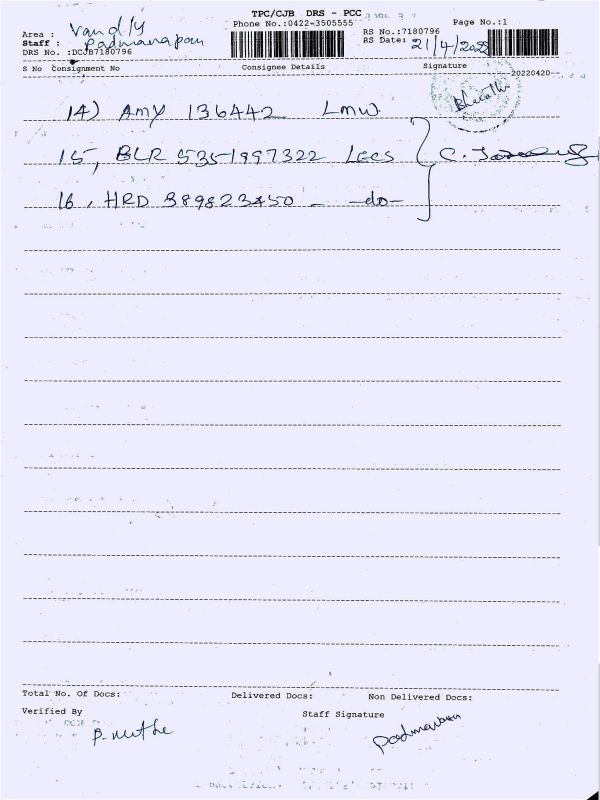 TPC/CJB DRS - PCC
Phone No.:0422-3505555 Page No.:1
Area : Vand/y RS No.:7180796
Staff : RS Date: 21/4/2022
DRS No. :DCJB7180796
S No Consignment No Consignee Details Signature
20220420
14) AMY 136442 LMW
15, BLR 5351997322 Lecs
16, HRD 389823450 - -do-
Total No. Of Docs: Delivered Docs: Non Delivered Docs:
Verified By Staff Signature